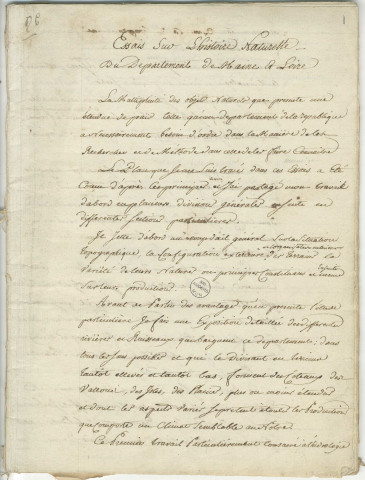 Essais Sur L'histoire Naturelle
Du Departement de Maine & Loire
La Multiplicité des objets Naturels que presente une
étendue de païs telle qu'un departement de la republique
a Necessairement besoin d'ordre dans la Maniere de les
Rechercher et de Methode dans celle de les faire Connoitre
Le Plan que j'ai suivi dans ces Essais a été
Conçu d'après ces principes et j'ai partagé mon travail
d'abord en plusieurs divisions générales et ensuite en
differentes sections particulieres
Je jette d'abord un coup d'œil général Sur la Situation
topographique, la Configuration exterieure des terrains la
Varieté de leurs Nature
Sur leurs productions
Avant de Parler des avantages qu'il presente
particuliere Je fais une Exposition detaillée des differentes
rivieres et Ruisseaux qui baignent ce departement dans
tous les sens possibles et qui le Divisant en terrains
tantôt élevés et tantôt bas, forment des Coteaux des
Vallons, des Isles, des Plaines, plus ou moins étendus
et dont les aspects Variés
que comporte un Climat Semblable au Nôtre
Ce Premier travail Particulierement Consacré